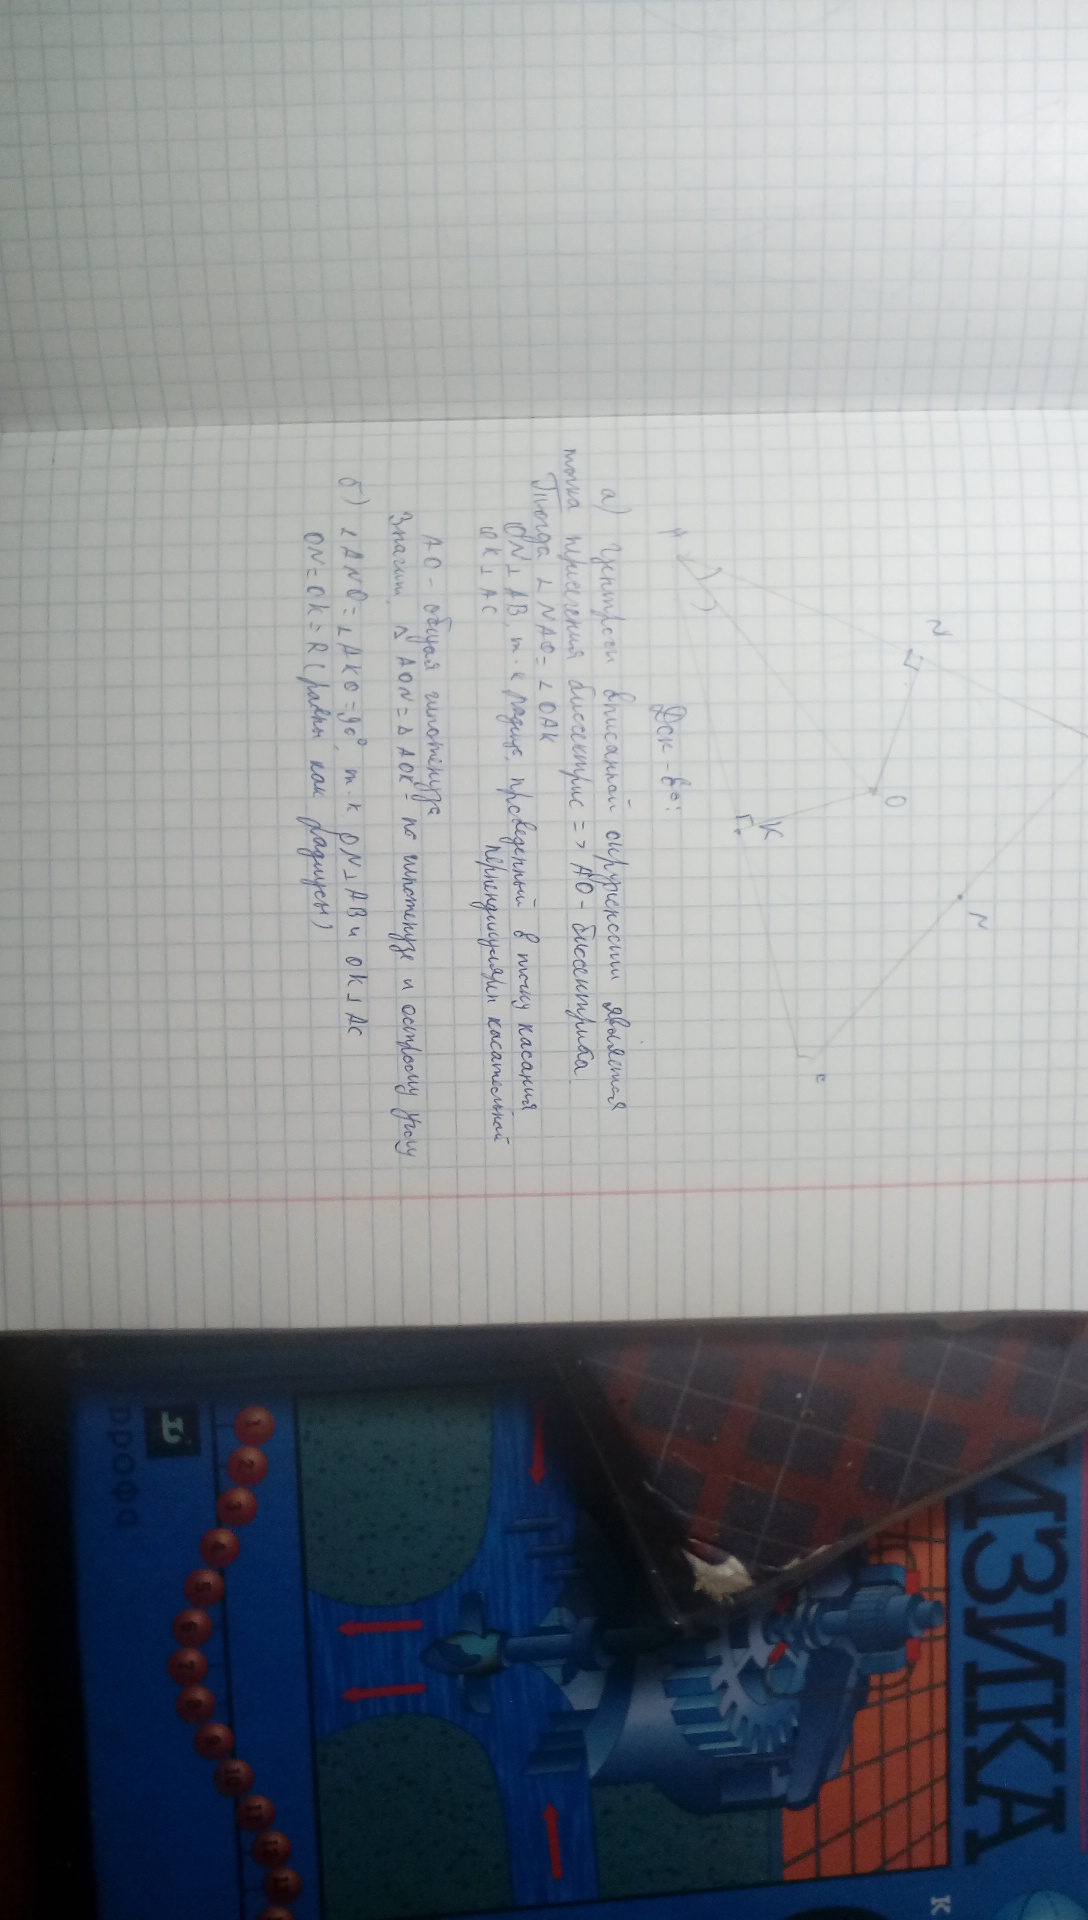 N
N
O
K
A
с
Док-во:
а) Центром вписанной окружности является
точка пересечения биссектрис => AO - биссектриса
Тогда ∠NAO = ∠OAK
ON ⊥ AB, т.к радиус, проведенный в точку касания
OK ⊥ AC перпендикулярен касательной
AO - общая гипотенуза
Значит, △AON = △AOK - по гипотенузе и острому углу
б) ∠ANO = ∠AKO = 90°, т.к ON ⊥ AB и OK ⊥ AC
ON = OK = R (равны как радиусы)
ИЗИКА
К
дрофа
1
2
3
4
5
6
7
8
9
10
11
12
13